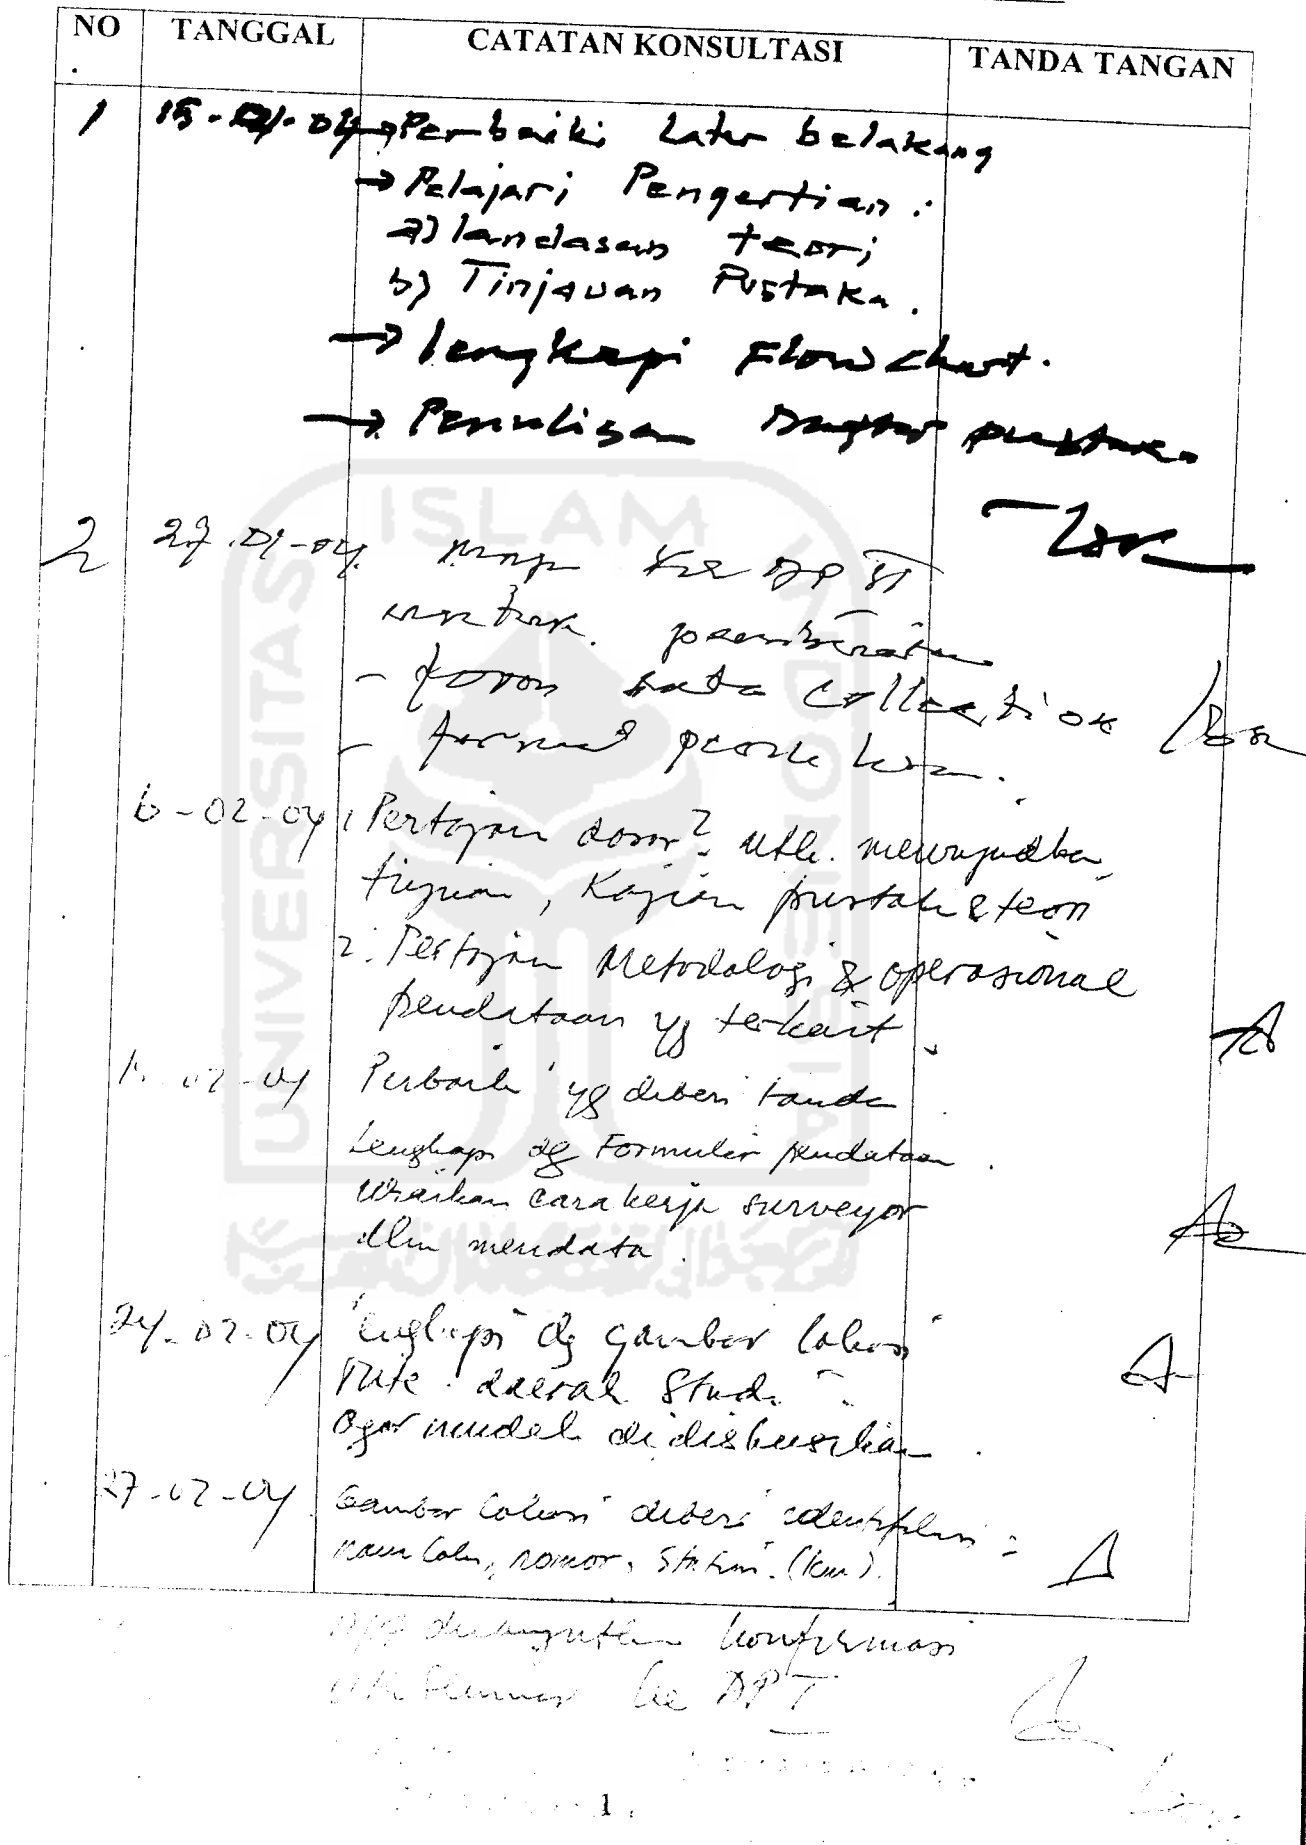 NO TANGGAL CATATAN KONSULTASI TANDA TANGAN
1 15-01-04 → Perbaiki Latar belakang
→ Pelajari Pengertian :
a) landasan teori
b) Tinjauan Pustaka.
→ lengkapi Flow chart.
→ Penulisan Daftar pustaka
2 27-01-04. ke DP II
untuk.
- form data collection
- format
6-02-04 1. Pertajam dasar² utk. mewujudkan
tujuan, Kajian pustaka & teori
2. Pertajam Metodologi & operasional
pendataan yg terkait.
02-04 Perbaiki yg diberi tanda
Lengkapi dg Formulir pendataan.
Uraikan cara kerja surveyor
dlm mendata.
24-02-04 Lengkapi dg gambar lokasi
rute daerah Studi.
agar mudah di diskusikan
27-02-04 Gambar lokasi diberi identifikasi :
nama lokasi, nomor, Station. (km).
konfirmasi
ke DP I
1
UNIVERSITAS ISLAM INDONESIA